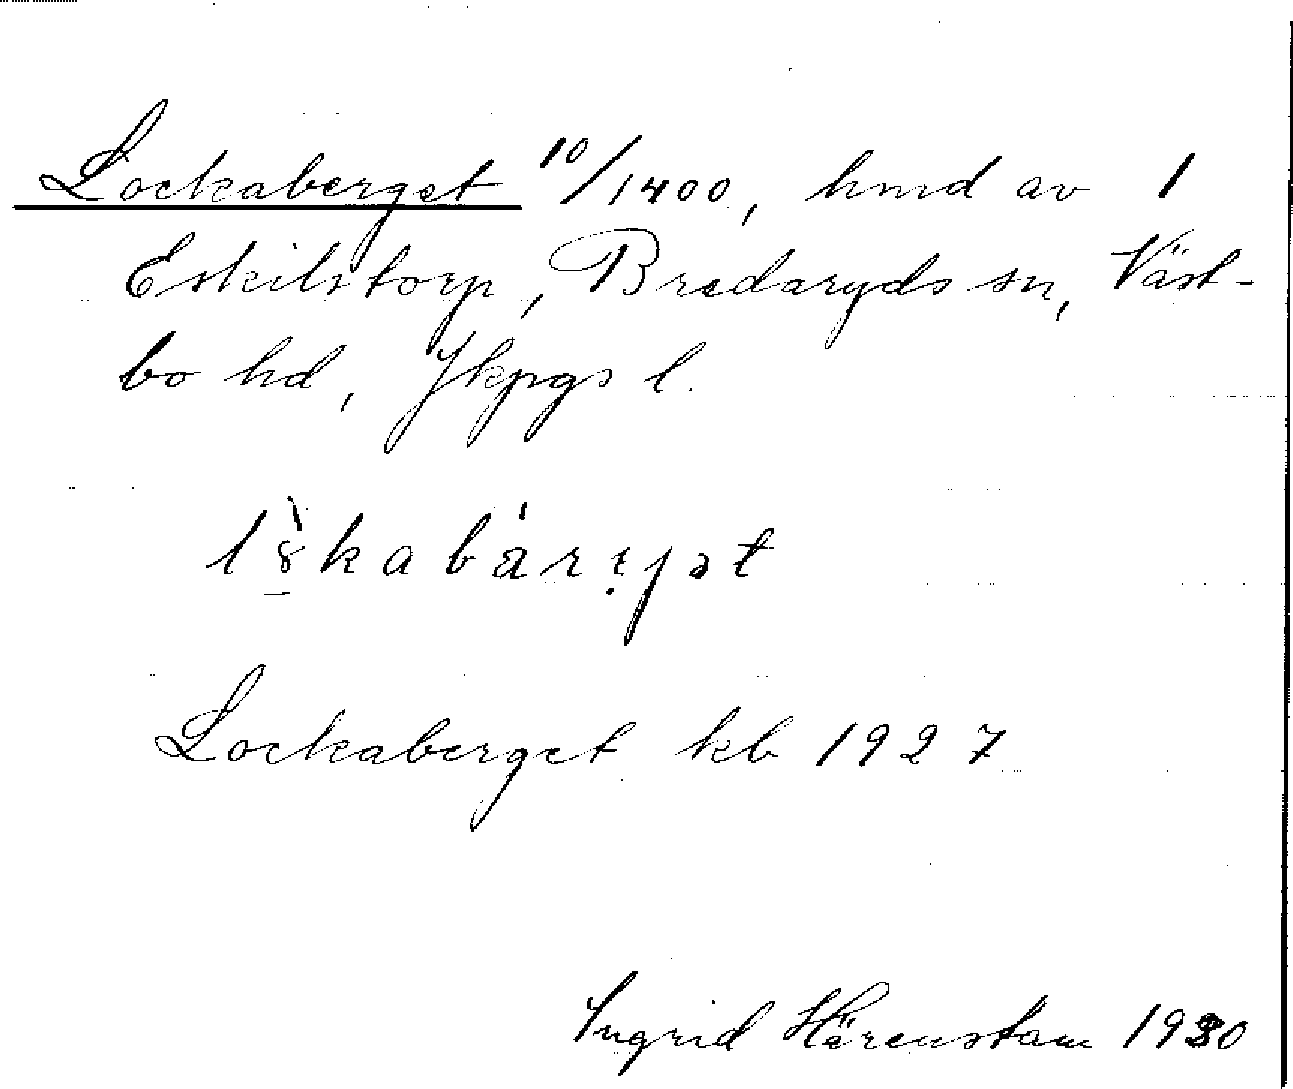 Lockaberget 10/1400, hmd av 1
Eskilstorp, Bredaryds sn, Väst-
bo hd, Jkpgs l.
Lockaberget kb 1927
Ingrid Härenstam 1930